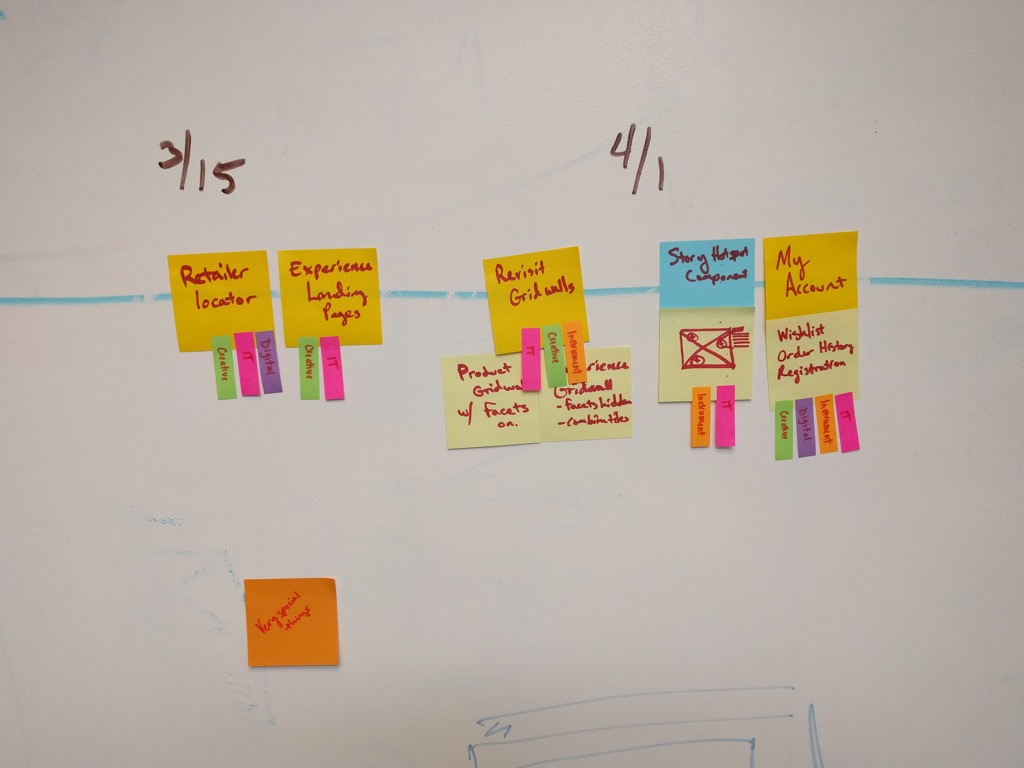 3/15
4/1
Retailer
locator
Creative
IT
Digital
Experience
Landing
Pages
Creative
IT
Revisit
Gridwalls
IT
Creative
Instrument
Product
w/ Facets
on.
Gridwall
- Facets hidden
- Combine tiles
Story Hotspot
Component
Instrument
IT
My
Account
Wishlist
Order History
Registration
Creative
Digital
Instrument
IT
Very special
things